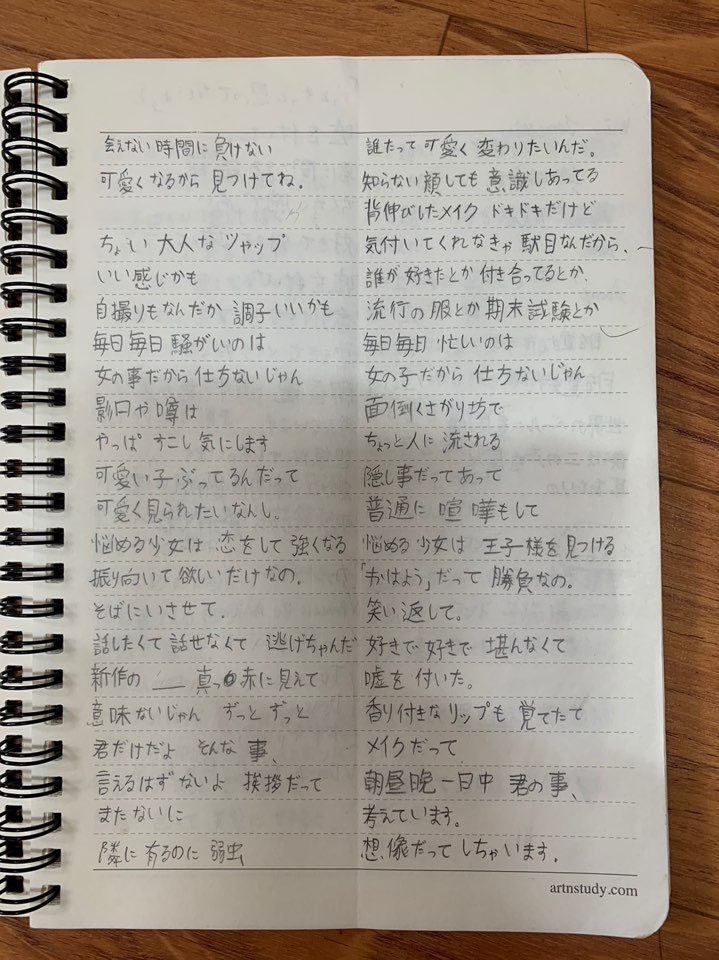 会えない時間に 負けない
可愛くなるから 見つけてね.
ちょい 大人な ツャップ
いい感じかも
自撮りもなんだか 調子いいかも
毎日毎日 騒がいのは
女の事だから 仕方ないじゃん
影口や 噂は
やっぱ すこし 気にします
可愛い子 ぶってるんだって
可愛く見られたいなんし.
悩める少女は 恋をして 強くなる
振り向いて欲しいだけなの.
そばにいさせて.
話したくて 話せなくて 逃げちゃんだ
新作の __ 真っ赤に見えて
意味ないじゃん ずっと ずっと
君だけだよ そんな 事、
言えるはずないよ 挨拶だって
まだないに
隣に 有るのに 弱虫
誰だって 可愛く 変わりたいんだ。
知らない 顔しても 意識しあってる
背伸びしたメイク ドキドキだけど
気付いてくれなきゃ 駄目なんだから、
誰が 好きだとか 付き合ってるとか、
流行の 服とか 期末 試験とか
毎日毎日 忙しいのは
女の子だから 仕方ないじゃん
面倒くさがり坊で
ちょっと人に 流される
隠し事だってあって
普通に 喧嘩もして
悩める 少女は 王子様を見つける
「おはよう」だって 勝負なの。
笑い返して。
好きで 好きで 堪んなくて
嘘を 付いた。
香り付きな リップも 覚てたて
メイクだって
朝昼晩 一日中 君の事、
考えています。
想像だって しちゃいます.
artnstudy.com